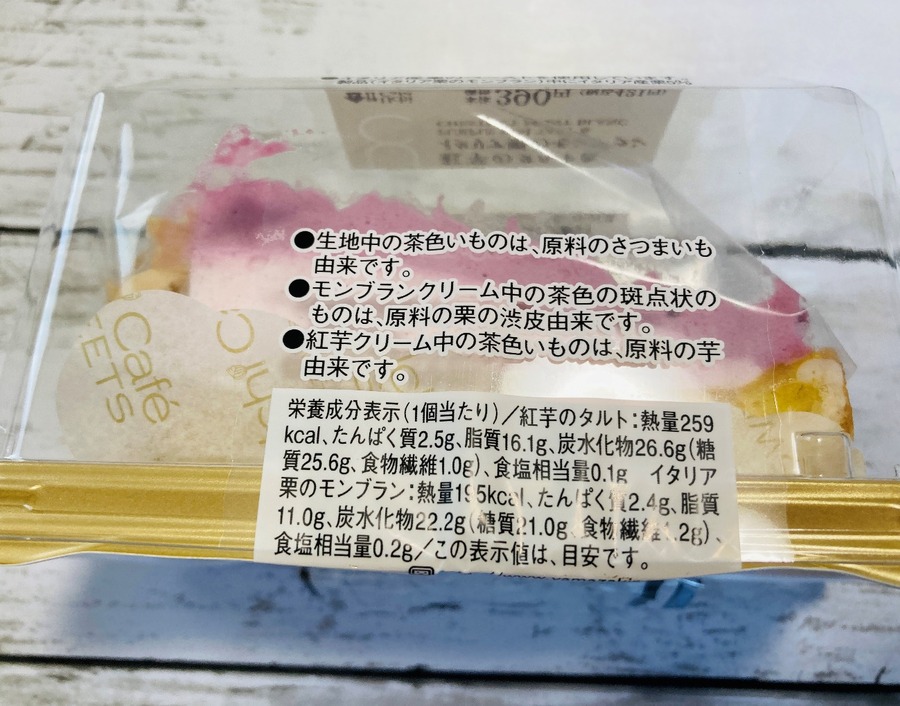 390円
●生地中の茶色いものは、原料のさつまいも
由来です。
●モンブランクリーム中の茶色の斑点状の
ものは、原料の栗の渋皮由来です。
●紅芋クリーム中の茶色いものは、原料の芋
由来です。
Café
ETS
栄養成分表示(1個当たり)/紅芋のタルト:熱量259
kcal、たんぱく質2.5g、脂質16.1g、炭水化物26.6g(糖
質25.6g、食物繊維1.0g)、食塩相当量0.1g イタリア
栗のモンブラン:熱量195kcal、たんぱく質2.4g、脂質
11.0g、炭水化物22.2g(糖質21.0g、食物繊維1.2g)、
食塩相当量0.2g/この表示値は、目安です。